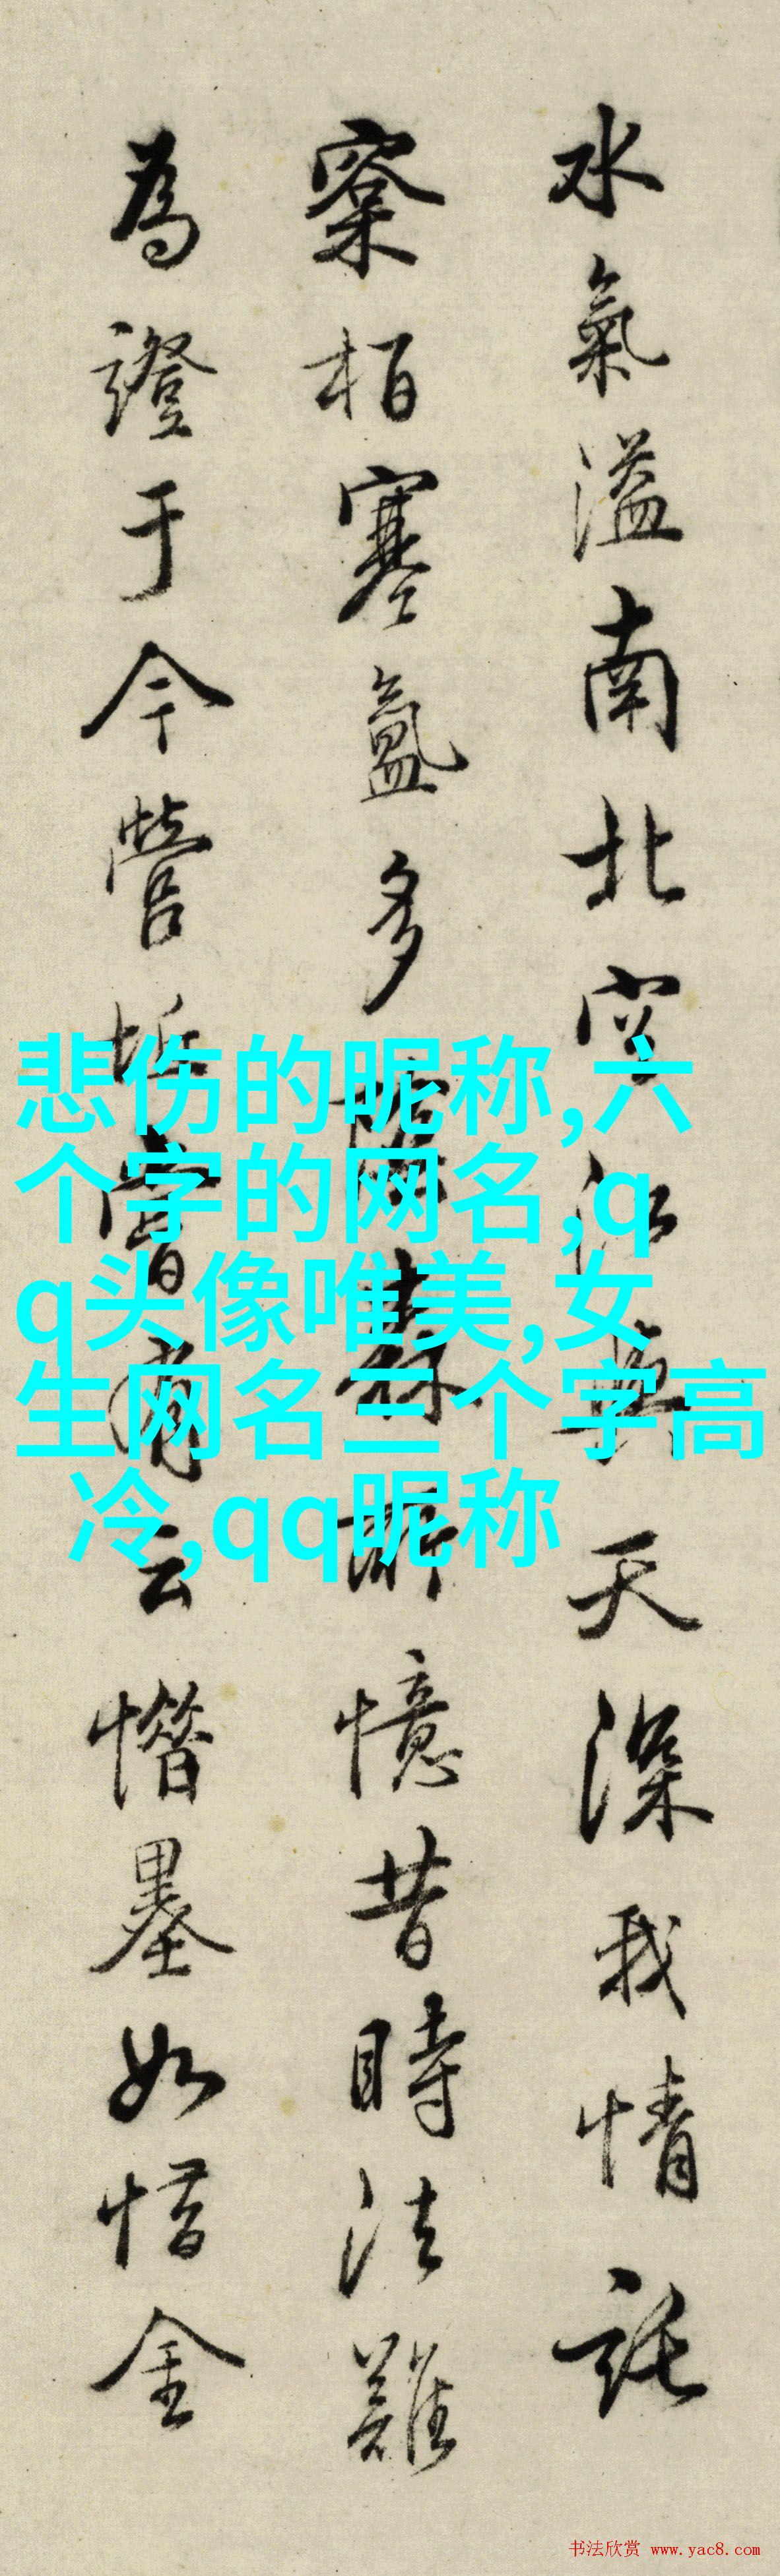 水氣溢南北空江天深我情託
窠柏氳多森所憶昔時法難
為證于今營坵嘗有云惜墨如惜金
悲伤的昵称,六
个字的网名,q
q头像唯美,女
生网名三个字高
冷,qq昵称
书法欣赏 www.yac8.com